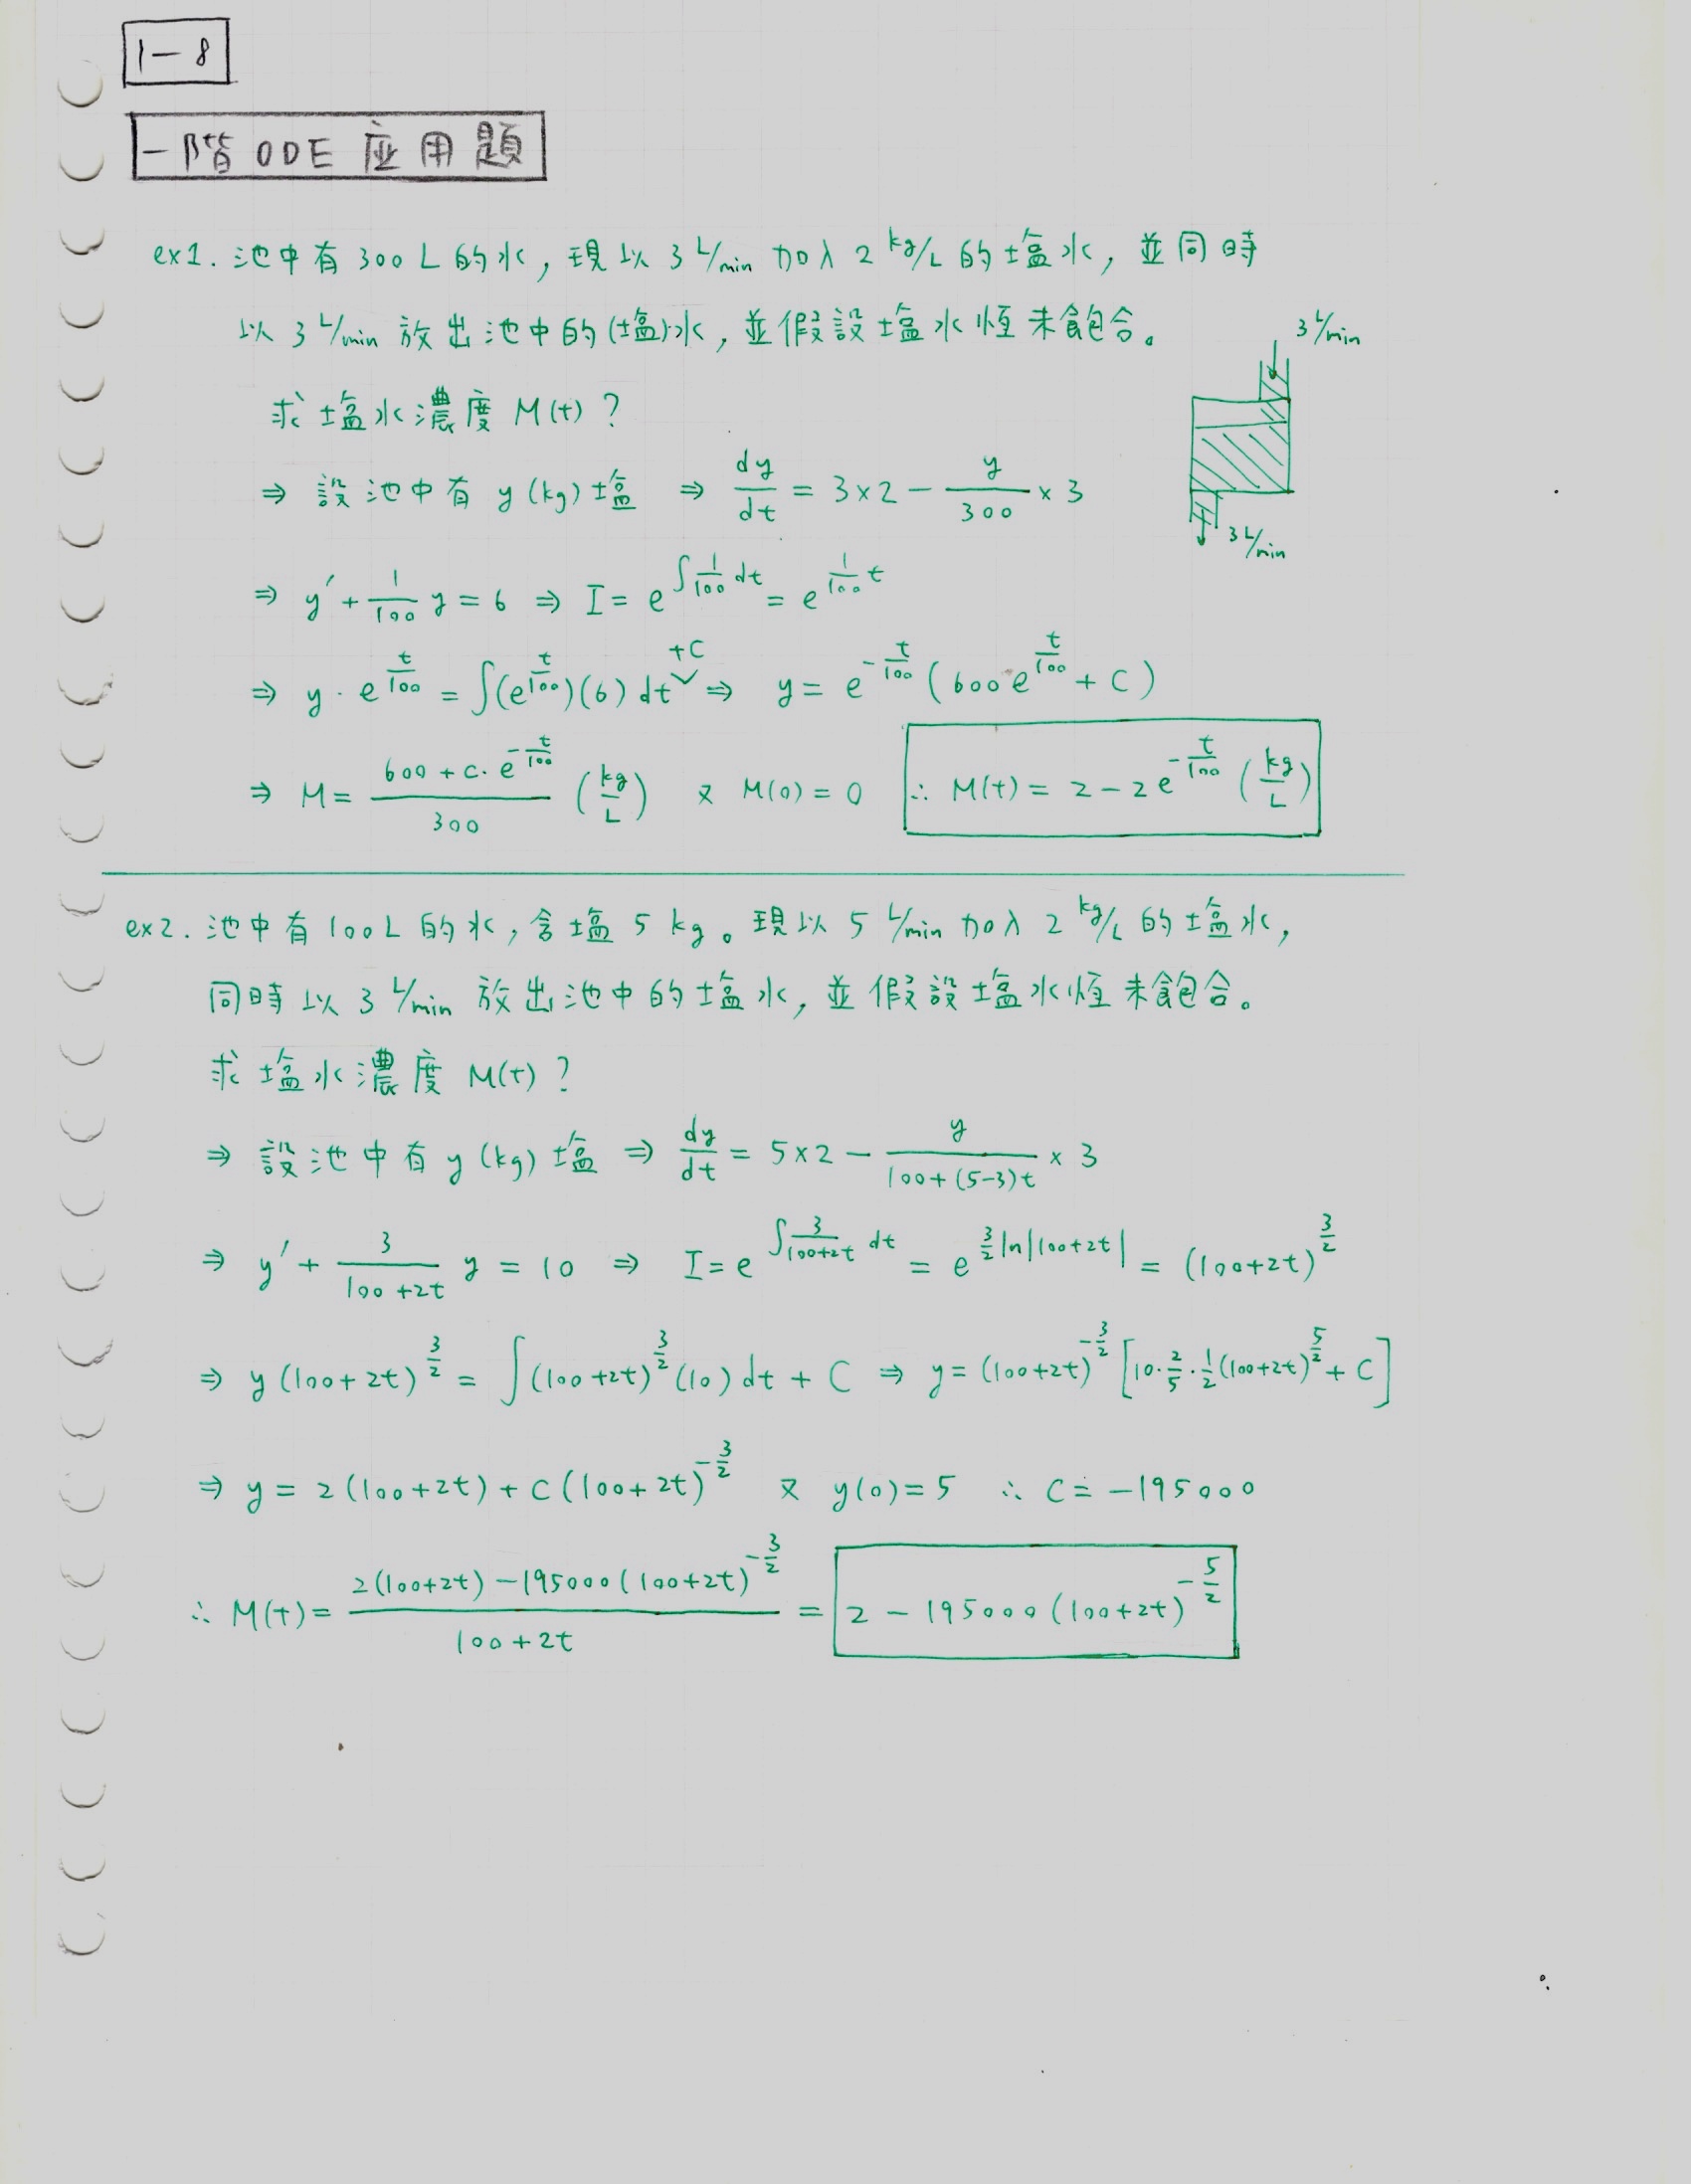 1-8
一階 ODE 应用題
ex1. 池中有 300 L 的水, 現以 3 L/min 加入 2 kg/L 的塩水, 並同時
以 3 L/min 放出池中的(塩)水, 並假設塩水恆未飽合。
3 L/min
求塩水濃度 M(t) ?
⇒ 設池中有 y (kg) 塩 ⇒ dy/dt = 3×2 − y/300 × 3
3 L/min
⇒ y' + 1/100 y = 6 ⇒ I = e^(∫ 1/100 dt) = e^(1/100 t)
⇒ y · e^(t/100) = ∫(e^(t/100))(6) dt +C ⇒ y = e^(-t/100) (600 e^(t/100) + C)
⇒ M = (600 + C· e^(-t/100))/300 (kg/L) 又 M(0) = 0 ∴ M(t) = 2 − 2 e^(-t/100) (kg/L)
ex2. 池中有 100 L 的水, 含塩 5 kg。現以 5 L/min 加入 2 kg/L 的塩水,
同時以 3 L/min 放出池中的塩水, 並假設塩水恆未飽合。
求塩水濃度 M(t) ?
⇒ 設池中有 y (kg) 塩 ⇒ dy/dt = 5×2 − y/(100+(5-3)t) × 3
⇒ y' + 3/(100+2t) y = 10 ⇒ I = e^(∫ 3/(100+2t) dt) = e^(3/2 ln|100+2t|) = (100+2t)^(3/2)
⇒ y (100+2t)^(3/2) = ∫(100+2t)^(3/2) (10) dt + C ⇒ y = (100+2t)^(-3/2) [10·2/5·1/2 (100+2t)^(5/2) + C]
⇒ y = 2 (100+2t) + C (100+2t)^(-3/2) 又 y(0) = 5 ∴ C = −195000
∴ M(t) = (2(100+2t) − 195000 (100+2t)^(-3/2))/(100+2t) = 2 − 195000 (100+2t)^(-5/2)